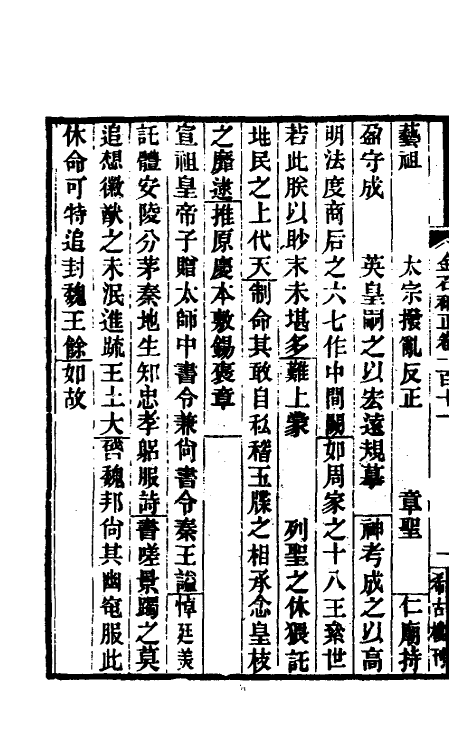 金石補正卷一百十一
一
希古樓刊
藝祖　太宗撥亂反正　章聖　仁廟持
盈守成　英皇嗣之以宏遠規摹　神考成之以高
明法度商后之六七作中間闕如周家之十八王奕世
若此朕以眇末未堪多難上蒙　列聖之休猥託
兆民之上代天制命其敢自私稽玉牒之相承念皇枝
之靡逮推原慶本敷錫褒章
宣祖皇帝子贈太師中書令兼尚書令秦王謚悼廷美
託體安陵分茅秦地生知忠孝躬服詩書嗟景躅之莫
追想徽猷之未泯進疏王土大啓魏邦尚其幽窀服此
休命可特追封魏王餘如故